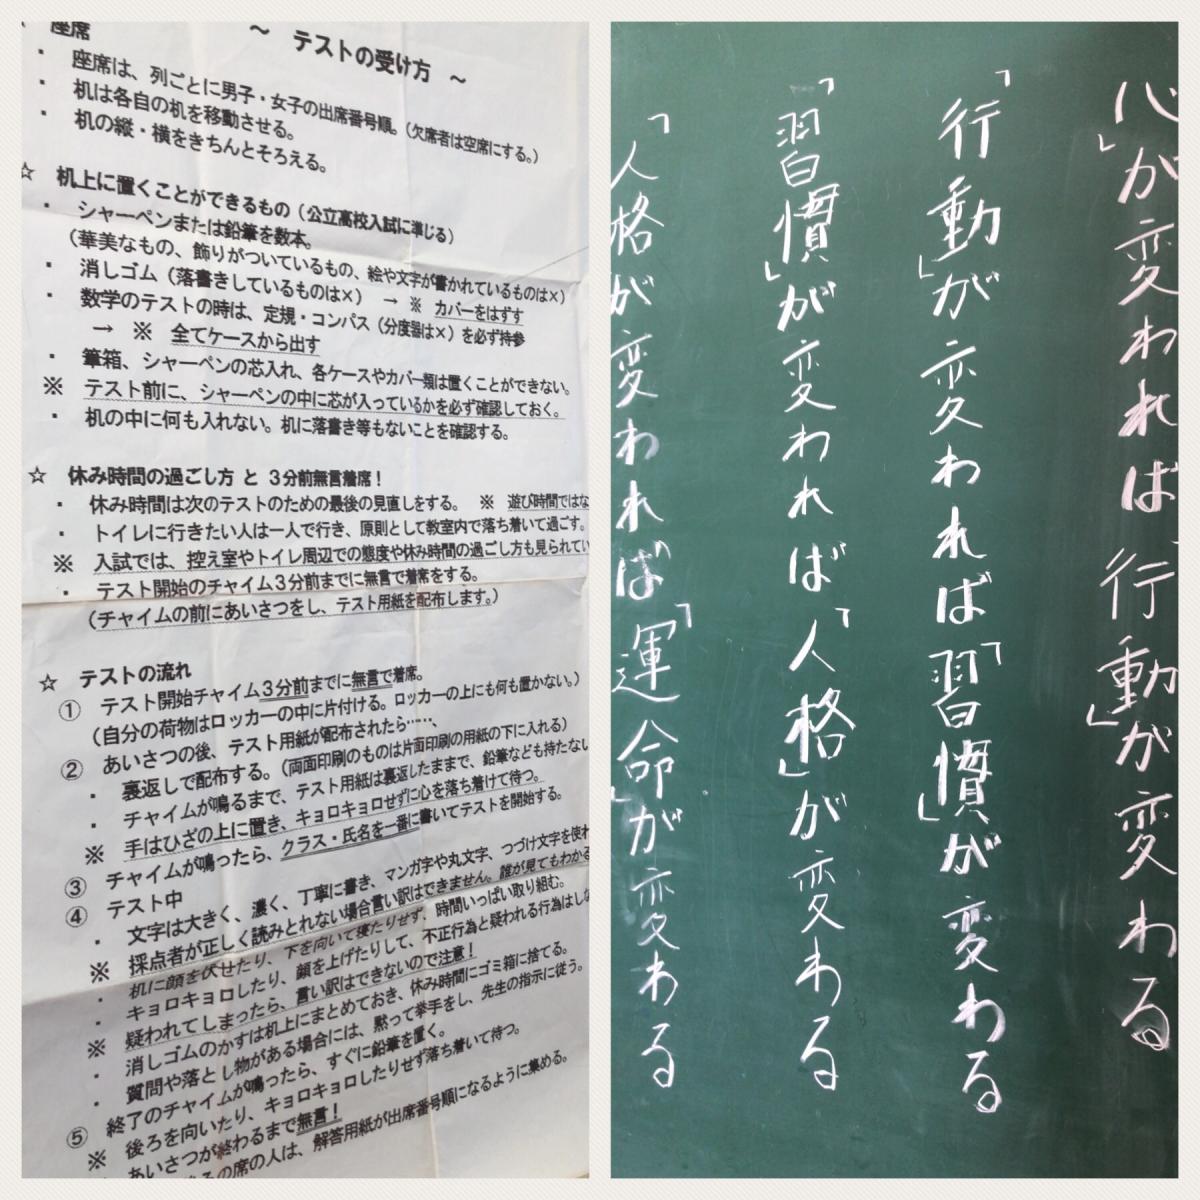 座席
～ テストの受け方 ～
・ 座席は、列ごとに男子・女子の出席番号順。(欠席者は空席にする。)
・ 机は各自の机を移動させる。
・ 机の縦・横をきちんとそろえる。
☆ 机上に置くことができるもの(公立高校入試に準じる)
・ シャーペンまたは鉛筆を数本。
(華美なもの、飾りがついているもの、絵や文字が書かれているものは×)
・ 消しゴム(落書きしているものは×) → ※ カバーをはずす
・ 数学のテストの時は、定規・コンパス(分度器は×)を必ず持参
→ ※ 全てケースから出す
・ 筆箱、シャーペンの芯入れ、各ケースやカバー類は置くことができない。
※ テスト前に、シャーペンの中に芯が入っているかを必ず確認しておく。
・ 机の中に何も入れない。机に落書き等もないことを確認する。
☆ 休み時間の過ごし方 と 3分前無言着席!
・ 休み時間は次のテストのための最後の見直しをする。 ※ 遊び時間ではな
・ トイレに行きたい人は一人で行き、原則として教室内で落ち着いて過ごす。
※ 入試では、控え室やトイレ周辺での態度や休み時間の過ごし方も見られてい
・ テスト開始のチャイム3分前までに無言で着席をする。
(チャイムの前にあいさつをし、テスト用紙を配布します。)
☆ テストの流れ
① テスト開始チャイム3分前までに無言で着席。
(自分の荷物はロッカーの中に片付ける。ロッカーの上にも何も置かない。)
② あいさつの後、テスト用紙が配布されたら……、
・ 裏返しで配布する。(両面印刷のものは片面印刷の用紙の下に入れる)
・ チャイムが鳴るまで、テスト用紙は裏返したままで、鉛筆なども持たない
※ 手はひざの上に置き、キョロキョロせずに心を落ち着けて待つ。
③ チャイムが鳴ったら、クラス・氏名を一番に書いてテストを開始する。
④ テスト中
・ 文字は大きく、濃く、丁寧に書き、マンガ字や丸文字、つづけ文字を使わ
※ 採点者が正しく読みとれない場合言い訳はできません。誰が見てもわかる
・ 机に顔を伏せたり、下を向いて寝たりせず、時間いっぱい取り組む。
・ キョロキョロしたり、顔を上げたりして、不正行為と疑われる行為はしな
※ 疑われてしまったら、言い訳はできないので注意!
・ 消しゴムのかすは机上にまとめておき、休み時間にゴミ箱に捨てる。
・ 質問や落とし物がある場合には、黙って挙手をし、先生の指示に従う。
⑤ 終了のチャイムが鳴ったら、すぐに鉛筆を置く。
※ 後ろを向いたり、キョロキョロしたりせず落ち着いて待つ。
あいさつが終わるまで無言!
の席の人は、解答用紙が出席番号順になるように集める。
心」が変われば、行動」が変わる
「行動」が変われば「習慣」が変わる
「習慣」が変われば「人格」が変わる
「人格が変われば「運命」が変わる